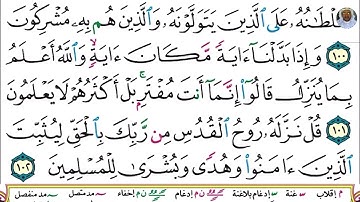 سُلْطَٰنُهُۥ عَلَى ٱلَّذِينَ يَتَوَلَّوْنَهُۥ وَٱلَّذِينَ هُم بِهِۦ مُشْرِكُونَ
١٠٠ وَإِذَا بَدَّلْنَآ ءَايَةً مَّكَانَ ءَايَةٍ وَٱللَّهُ أَعْلَمُ
بِمَا يُنَزِّلُ قَالُوٓا۟ إِنَّمَآ أَنتَ مُفْتَرٍۭ بَلْ أَكْثَرُهُمْ لَا يَعْلَمُونَ
١٠١ قُلْ نَزَّلَهُۥ رُوحُ ٱلْقُدُسِ مِن رَّبِّكَ بِٱلْحَقِّ لِيُثَبِّتَ
ٱلَّذِينَ ءَامَنُوا۟ وَهُدًى وَبُشْرَىٰ لِلْمُسْلِمِينَ ١٠٢
م إقلاب غنة إدغام بلاغنة ن م إدغام ن م إخفاء مد متصل مد منفصل